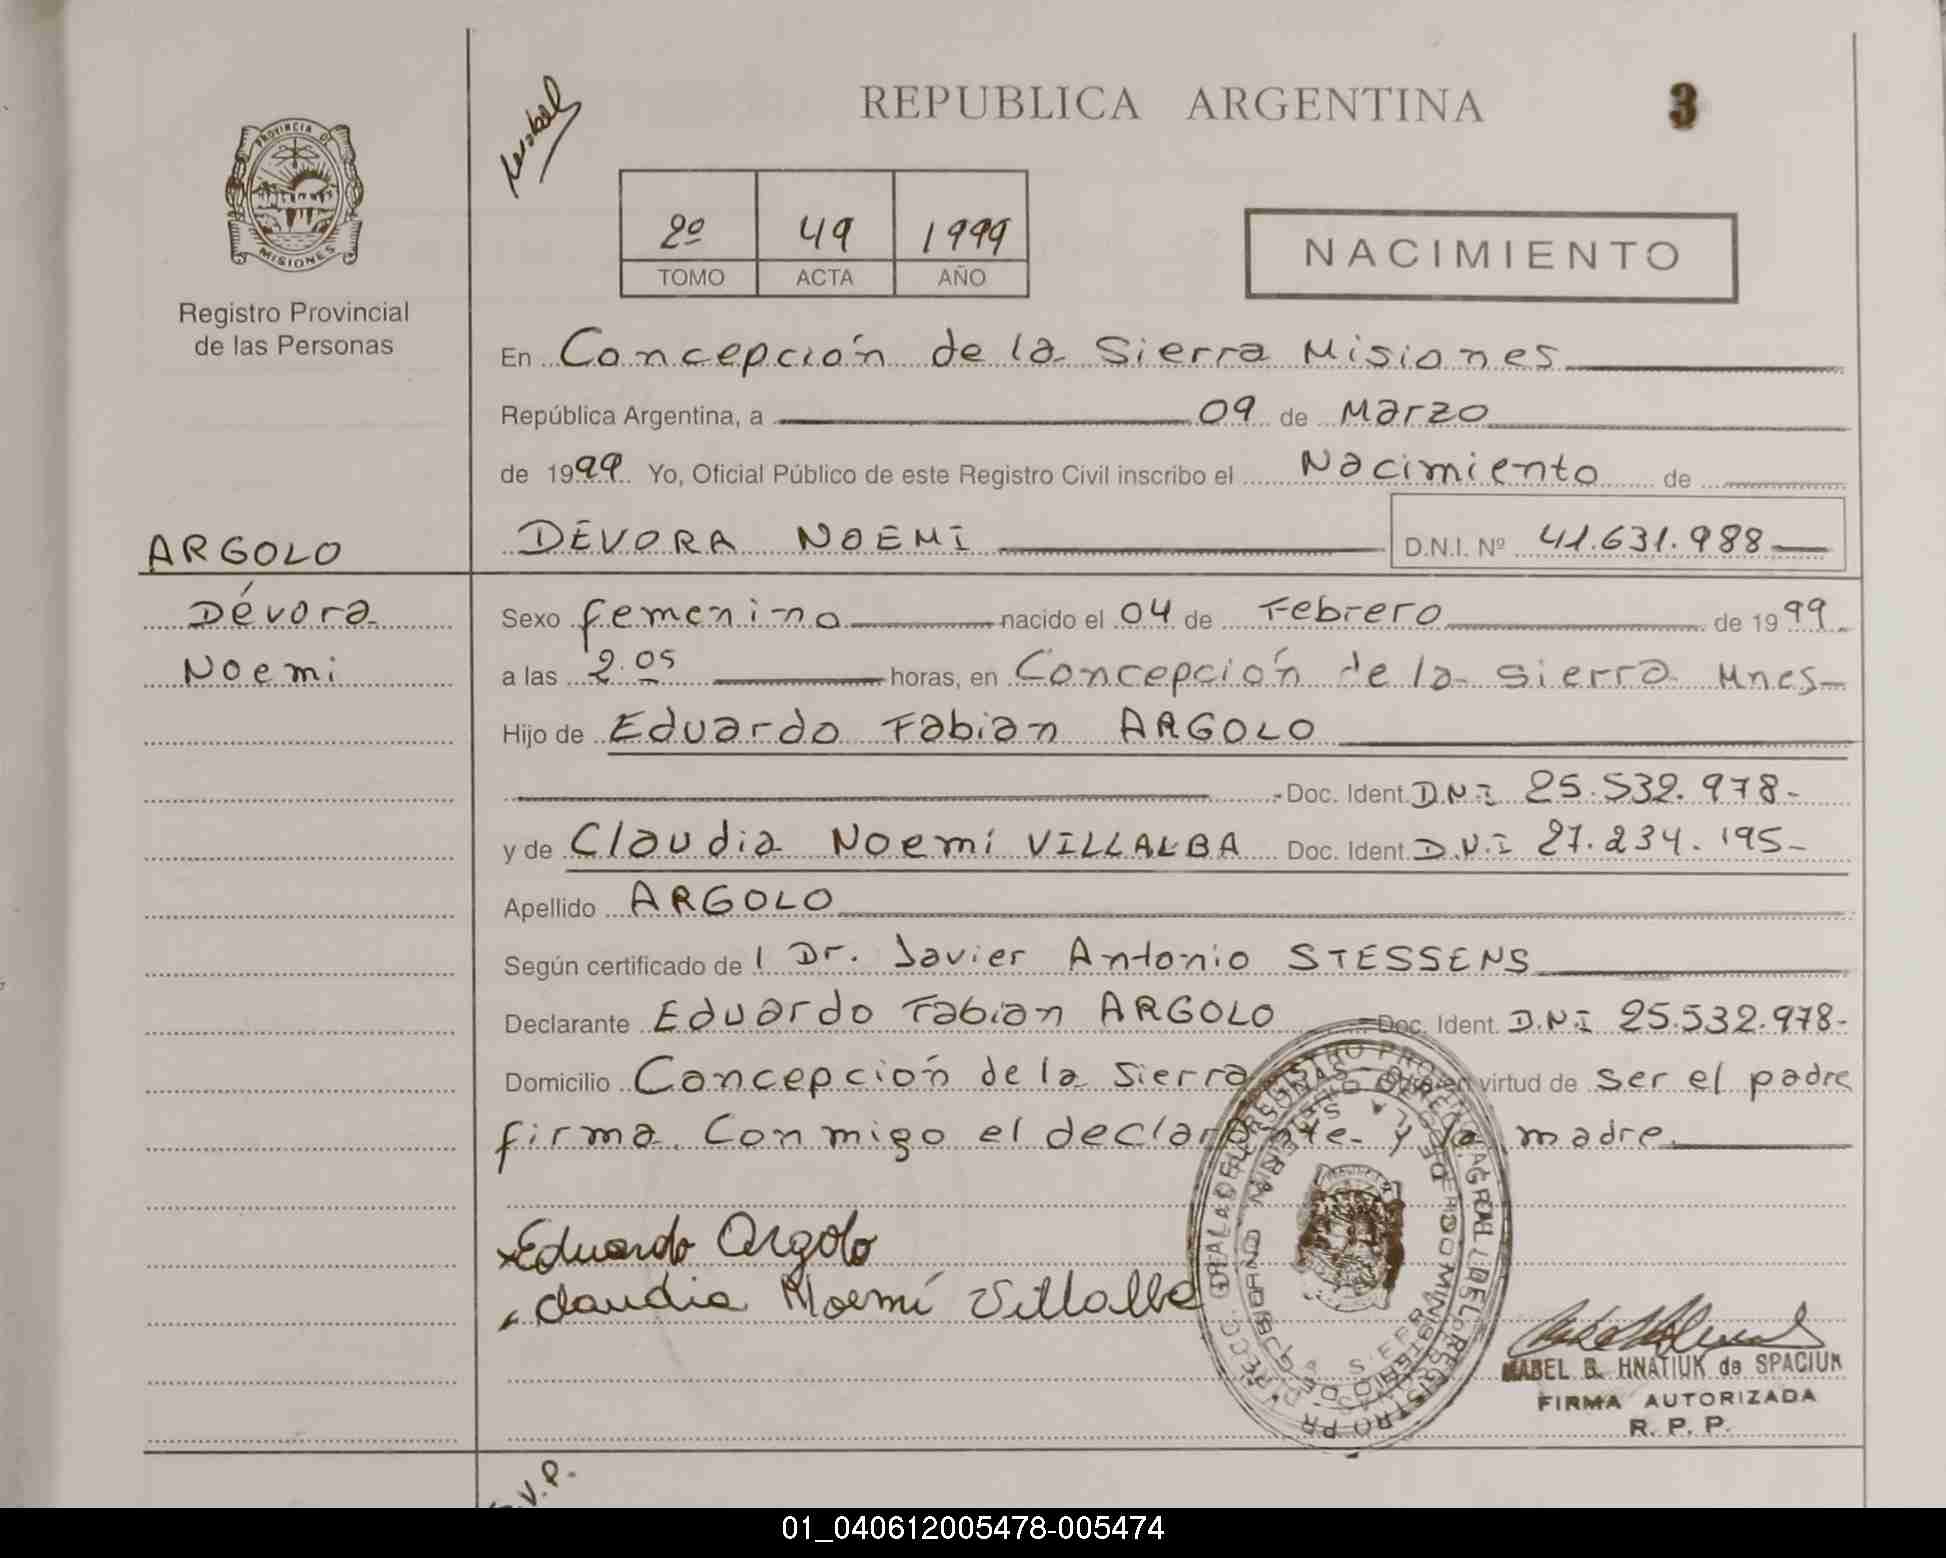 REPUBLICA ARGENTINA
3
PROVINCIA DE
MISIONES
Registro Provincial
de las Personas
2º 49 1999
TOMO ACTA AÑO
NACIMIENTO
En Concepción de la Sierra Misiones
República Argentina, a 09 de Marzo
de 1999 Yo, Oficial Público de este Registro Civil inscribo el Nacimiento de
ARGOLO
DÉVORA NOEMI D.N.I. Nº 41.631.988
Dévora
Noemi
Sexo femenino nacido el 04 de Febrero de 1999
a las 2.05 horas, en Concepción de la Sierra Mnes-
Hijo de Eduardo Fabian ARGOLO
Doc. Ident. D.N.I 25.532.978-
y de Claudia Noemí VILLALBA Doc. Ident. D.N.I 27.234.195-
Apellido ARGOLO
Según certificado de l Dr. Javier Antonio STESSENS
Declarante Eduardo Fabian ARGOLO Doc. Ident. D.N.I 25.532.978-
Domicilio Concepción de la Sierra virtud de ser el padre
firma. Conmigo el declarante y la madre
Eduardo Argolo
Claudia Noemí Villalba
MABEL B. HNATIUK de SPACIUK
FIRMA AUTORIZADA
R. P. P.
01_040612005478-005474